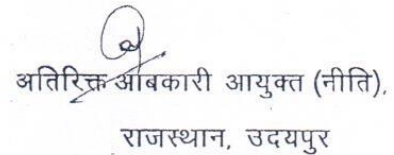 अतिरिक्त आबकारी आयुक्त (नीति),
राजस्थान, उदयपुर